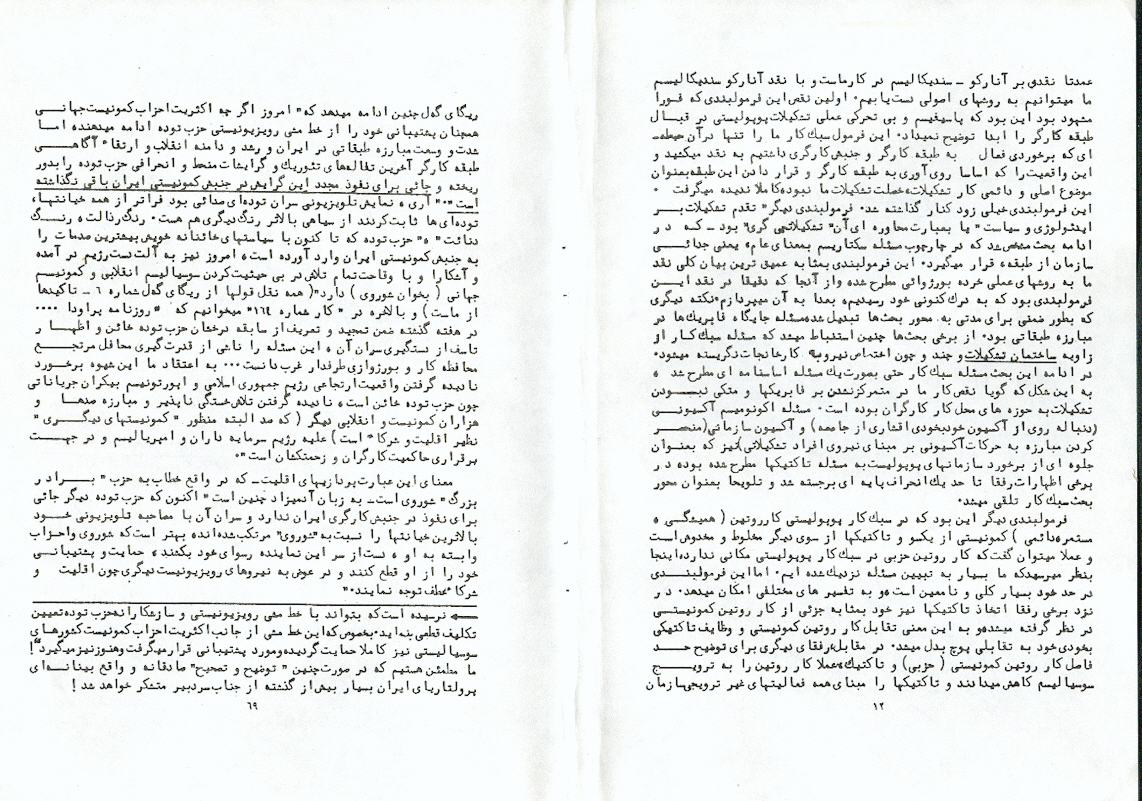 عمدتا نقدی بر آنارکو ـ سندیکالیسم در کار ماست و با نقد آنارکو سندیکالیسم
ما میتوانیم به روشهای اصولی دست یابیم. اولین نقص این فرمولبندی که فورا
مشهود بود این بود که پاسیفیسم و بی تحرکی عملی تشکیلات پوپولیستی در قبال
طبقه کارگر را ابدا توضیح نمیداد. این فرمول سبک کار ما را تنها در آن حیطه ـ
ای که برخوردی فعال به طبقه کارگر و جنبش کارگری داشتیم به نقد میکشید و
این واقعیت را که اساسا روی آوری به طبقه کارگر و قرار دادن این طبقه بعنوان
موضوع اصلی و دائمی کار تشکیلات، خصلت تشکیلات ما نبوده کاملا ندیده میگرفت.
این فرمولبندی خیلی زود کنار گذاشته شد. فرمولبندی دیگر "تقدم تشکیلات بر
ایدئولوژی و سیاست" یا بعبارت محاوره ای آن "تشکیلاتچی گری" بود ـ که در
ادامه بحث مشخص شد که در چارچوب مسئله سکتاریسم بمعنای عام، یعنی جدائی
سازمان از طبقه، قرار میگیرد. این فرمولبندی بمثابه عمیق ترین بیان کلی نقد
ما به روشهای عملی خرده بورژوائی مطرح شد، و از آنجا که دقیقا در نقد این
فرمولبندی بود که به درک کنونی خود رسیدیم، بعدا به آن میپردازم. نکته دیگری
که بطور ضمنی برای مدتی به محور بحث‌ها تبدیل شد، مسئله جایگاه فابریک‌ها در
مبارزه طبقاتی بود. از برخی بحث‌ها چنین استنباط میشد که مسئله سبک کار از
زاویه ساختمان تشکیلات و چند و چون اختصاص نیرو به کارخانجات نگریسته میشود.
در ادامه این بحث مسئله سبک کار حتی بصورت یک مسئله اساسنامه ای مطرح شد،
به این شکل که گویا نقص کار ما در متمرکز نشدن بر فابریکها و متکی نبودن
تشکیلات به حوزه های محل کار کارگران بوده است. مسئله اکونومیسم آکسیونی
(دنباله روی از آکسیون خودبخودی اقشاری از جامعه) و آکسیون سازمانی (منحصر
کردن مبارزه به حرکات آکسیونی بر مبنای نیروی افراد تشکیلاتی) نیز که بعنوان
جلوه ای از برخورد سازمانهای پوپولیست به مسئله تاکتیکها مطرح شده بوده در
برخی اظهارات رفقا تا حد یک انحراف پایه ای برجسته شد و تلویحا بعنوان محور
بحث سبک کار تلقی میشد.
فرمولبندی دیگر این بود که در سبک کار پوپولیستی کار روتین (همیشگی،
مستمر، دائمی) کمونیستی از یکسو و تاکتیکها از سوی دیگر مخلوط و مخدوش است
و عملا میتوان گفت که کار روتین حزبی در سبک کار پوپولیستی مکانی ندارد. اینجا
بنظر میرسید که ما بسیار به تبیین مسئله نزدیک شده ایم. اما این فرمولبندی
در حد خود بسیار کلی و نامعین است، و به تفسیر های مختلفی امکان میدهد. در
نزد برخی رفقا اتخاذ تاکتیکها نیز خود بمثابه جزئی از کار روتین کمونیستی
در نظر گرفته میشد، و به این معنی تقابل کار روتین کمونیستی و وظایف تاکتیکی
بخودی خود به تقابلی پوچ بدل میشد. در مقابل، رفقای دیگری برای توضیح حد
فاصل کار روتین کمونیستی (حزبی) و تاکتیک، عملا کار روتین را به ترویج
سوسیالیسم کاهش میدادند و تاکتیکها را مبنای همه فعالیتهای غیر ترویجی سازمان
۱۲
ریگای گه‌ل چنین ادامه میدهد که "امروز اگر چه اکثریت احزاب کمونیست جهانی
همچنان پشتیبانی خود را از خط مشی رویزیونیستی حزب توده ادامه میدهند، اما
شدت و وسعت مبارزه طبقاتی در ایران و رشد و دامنه انقلاب و ارتقاء آگاهی
طبقه کارگر آخرین تفاله‌های تئوریک و گرایشات منحط و انحرافی حزب توده را بدور
ریخته و جائی برای نفوذ مجدد این گرایش در جنبش کمونیستی ایران باقی نگذاشته
است". "آری، نمایش تلویزیونی سران توده‌ای صدائی بود فراتر از همه خیانتها،
توده‌ای ها ثابت کردند از سیاهی بالاتر رنگ دیگری هم هست. رنگ رذالت، رنگ
دنائت". "حزب توده که تا کنون با سیاستهای خائنانه خویش بیشترین صدمات را
به جنبش کمونیستی ایران وارد آورده است، امروز نیز به آلت دست رژیم در آمده
و آشکارا و با وقاحت تمام تلاش در بی حیثیت کردن سوسیالیسم انقلابی و کمونیسم
جهانی (بخوان شوروی) دارد" (همه نقل قولها از ریگای گه‌ل شماره ٦ ـ تاکیدها
از ماست) و بالاتره در "کار شماره ١٦٤" میخوانیم که "روزنامه پراودا ....
در هفته گذشته ضمن تمجید و تعریف از سابقه درخشان حزب توده خائن و اظهار
تاسف از دستگیری سران آن، این مسئله را ناشی از قدرت گیری محافل مرتجع
محافظه کار و بورژوازی طرفدار غرب دانست... به اعتقاد ما این شیوه برخورد
نادیده گرفتن واقعیت ارتجاعی رژیم جمهوری اسلامی و اپورتونیسم بیکران جریاناتی
چون حزب توده خائن است، نادیده گرفتن تلاش خستگی ناپذیر و مبارزه صدها و
هزاران کمونیست و انقلابی دیگر (که صد البته منظور "کمونیستهای دیگری"
نظیر اقلیت و شرکاء است) علیه رژیم سرمایه داران و امپریالیسم و در جهت
برقراری حاکمیت کارگران و زحمتکشان است".
معنای این عبارت پردازیهای اقلیت ـ که در واقع خطاب به حزب "برادر
بزرگ" شوروی است ـ به زبان آدمیزاد چنین است "اکنون که حزب توده دیگر جائی
برای نفوذ در جنبش کارگری ایران ندارد و سران آن با مصاحبه تلویزیونی خود
بالاترین خیانتها را نسبت به "شوروی" مرتکب شده‌اند، بهتر است که شوروی و احزاب
وابسته به او، دست از سر این نماینده رسوای خود بکشند، حمایت و پشتیبانی
خود را از او قطع کنند و در عوض به نیروهای رویزیونیست دیگری چون اقلیت و
شرکاء عطف توجه نمایند."
نرسیده است که بتواند با خط مشی رویزیونیستی و سازشکارانه حزب توده تعیین
تکلیف قطعی بنماید. بخصوص که این خط مشی از جانب اکثریت احزاب کمونیست کشورهای
سوسیالیستی نیز کاملا حمایت گردیده و مورد پشتیبانی قرار میگرفت و هنوز نیز میگیرد"!
ما مطمئن هستیم که در صورت چنین "توضیح و تصحیح" صادقانه و واقع بینانه‌ای
پرولتاریای ایران بسیار بیش از گذشته از جناب سردبیر متشکر خواهد شد!
٦٩